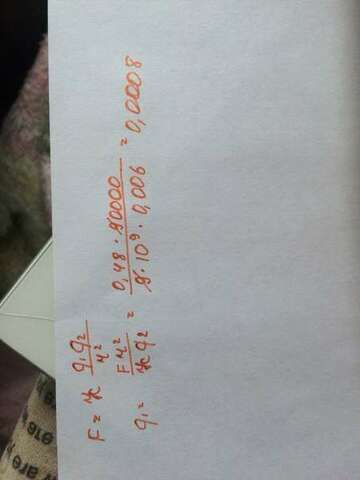 F = k q₁q₂/r²
q₁ = Fr²/kq₂ = 0,48 · 90000/9 · 10⁹ · 0,006 = 0,0008
are